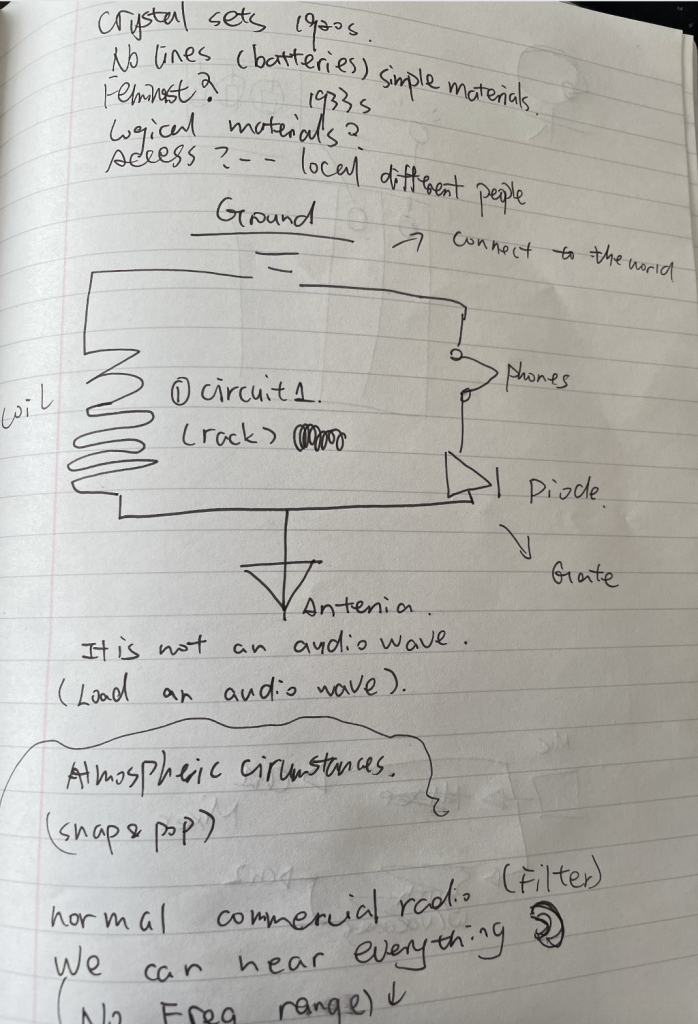 Crystal sets 1920s.
No lines (batteries) simple materials.
Feminist? 1933s
Logical materials?
Access ? -- local different people
Ground
→ connect to the world
coil
① circuit 1.
(rack)
phones
Diode.
Grate
Antenia.
It is not an audio wave.
(Load an audio wave).
Atmospheric cirumstances.
(snap & pop)
normal commercial radio (Filter)
We can hear everything
(No Freq range) ↓